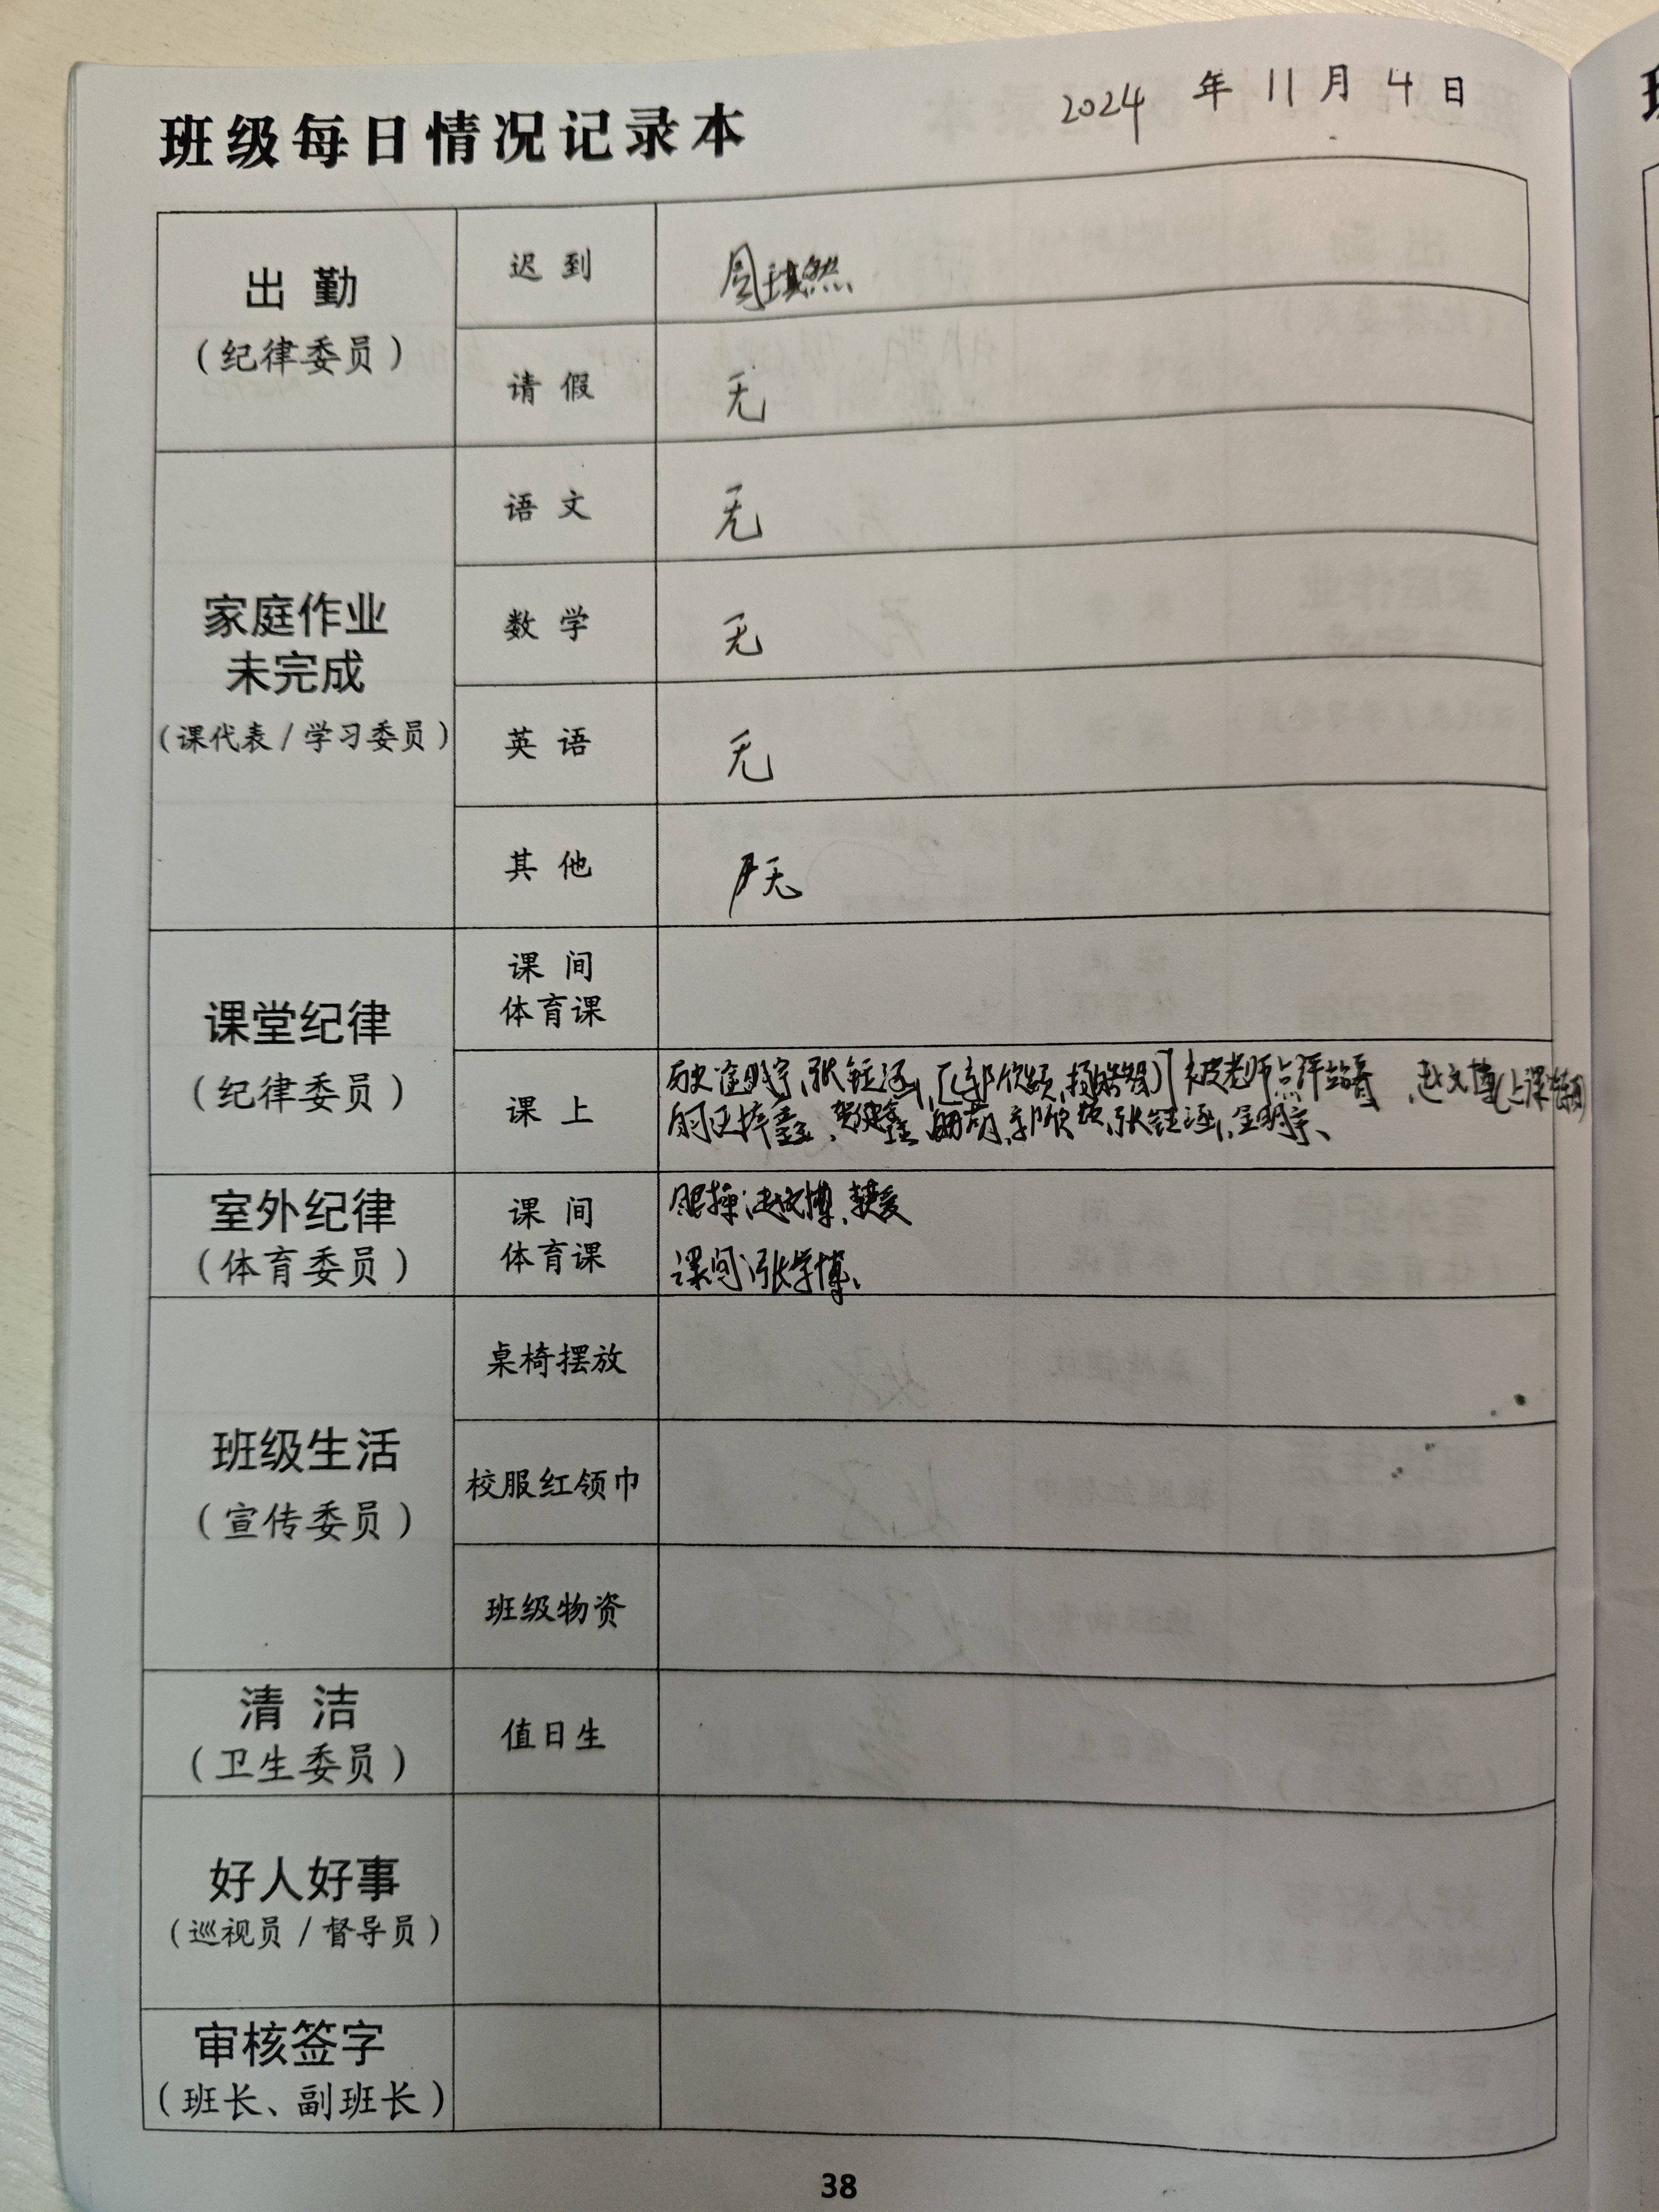 班级每日情况记录本
2024 年 11 月 4 日
出勤
(纪律委员)
迟到
周琪然
请假
无
家庭作业
未完成
(课代表/学习委员)
语文
无
数学
无
英语
无
其他
无
课堂纪律
(纪律委员)
课间
体育课
课上
历史 明宇、张钰涵、[郭欣颜、杨皓智] 被老师点评站着 赵文博(上课
郭欣颜、张钰涵、 明宇、
室外纪律
(体育委员)
课间
体育课
眼操:赵文博、
课间:张学博、
班级生活
(宣传委员)
桌椅摆放
校服红领巾
班级物资
清洁
(卫生委员)
值日生
好人好事
(巡视员/督导员)
审核签字
(班长、副班长)
38